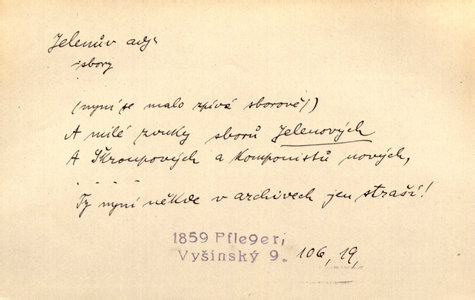 Jelenův adj.
sbory
(nyní se malo zpívá sborově!)
A milé zvuky sborů Jelenových
A Škroupových a komponistů nových,
. . . . .
Ty nyní někde v archivech jen straší!
1859 Pfleger,
Vyšínský 9. 106, 19,